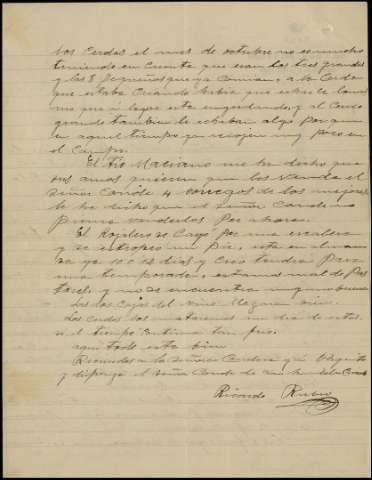 los cerdos el mes de octubre no es mucho
teniendo en cuenta que eran los tres grandes
y los 8 pequeños que ya comian, a la Cerda
que estaba Criando habia que echarle
no que á lapar esta engordando, y al Cerdo
grande tambien le echaban algo por que
en aquel tiempo ya cojen muy poco en
el Campo.
El Tio Maciano me ha dicho que
sus amos quieren que les venda el
Señor Conde 4 conegos de los mejores
le he dicho que el Señor Conde no
piensa venderlos por ahora.
El Rojalero se Cayó por una escalera
y se estropeo un pie, esta en
ya 10 ó 12 dias y Creo tendrá para
una temporada, estamos mal de Pas
tores, y no se encuentra ninguno bueno
Las dos Cajas del vino llegaron bien.
Los Cerdos los mataremos un dia de estos
si el tiempo Continua tan frio.
aqui todo esta bien
Recuerdos a la Señora Condesa y á
y disponga el Señor Conde de
Ricardo Rubio